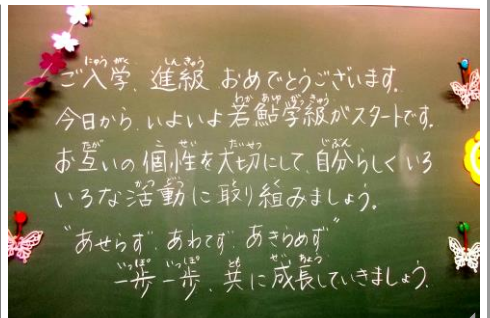 ご入学、進級 おめでとうございます。
今日から、いよいよ若鮎学級がスタートです。
お互いの個性を大切にして、自分らしくいろ
いろな活動に取り組みましょう。
"あせらず、あわてず、あきらめず"
一歩一歩、共に成長していきましょう。